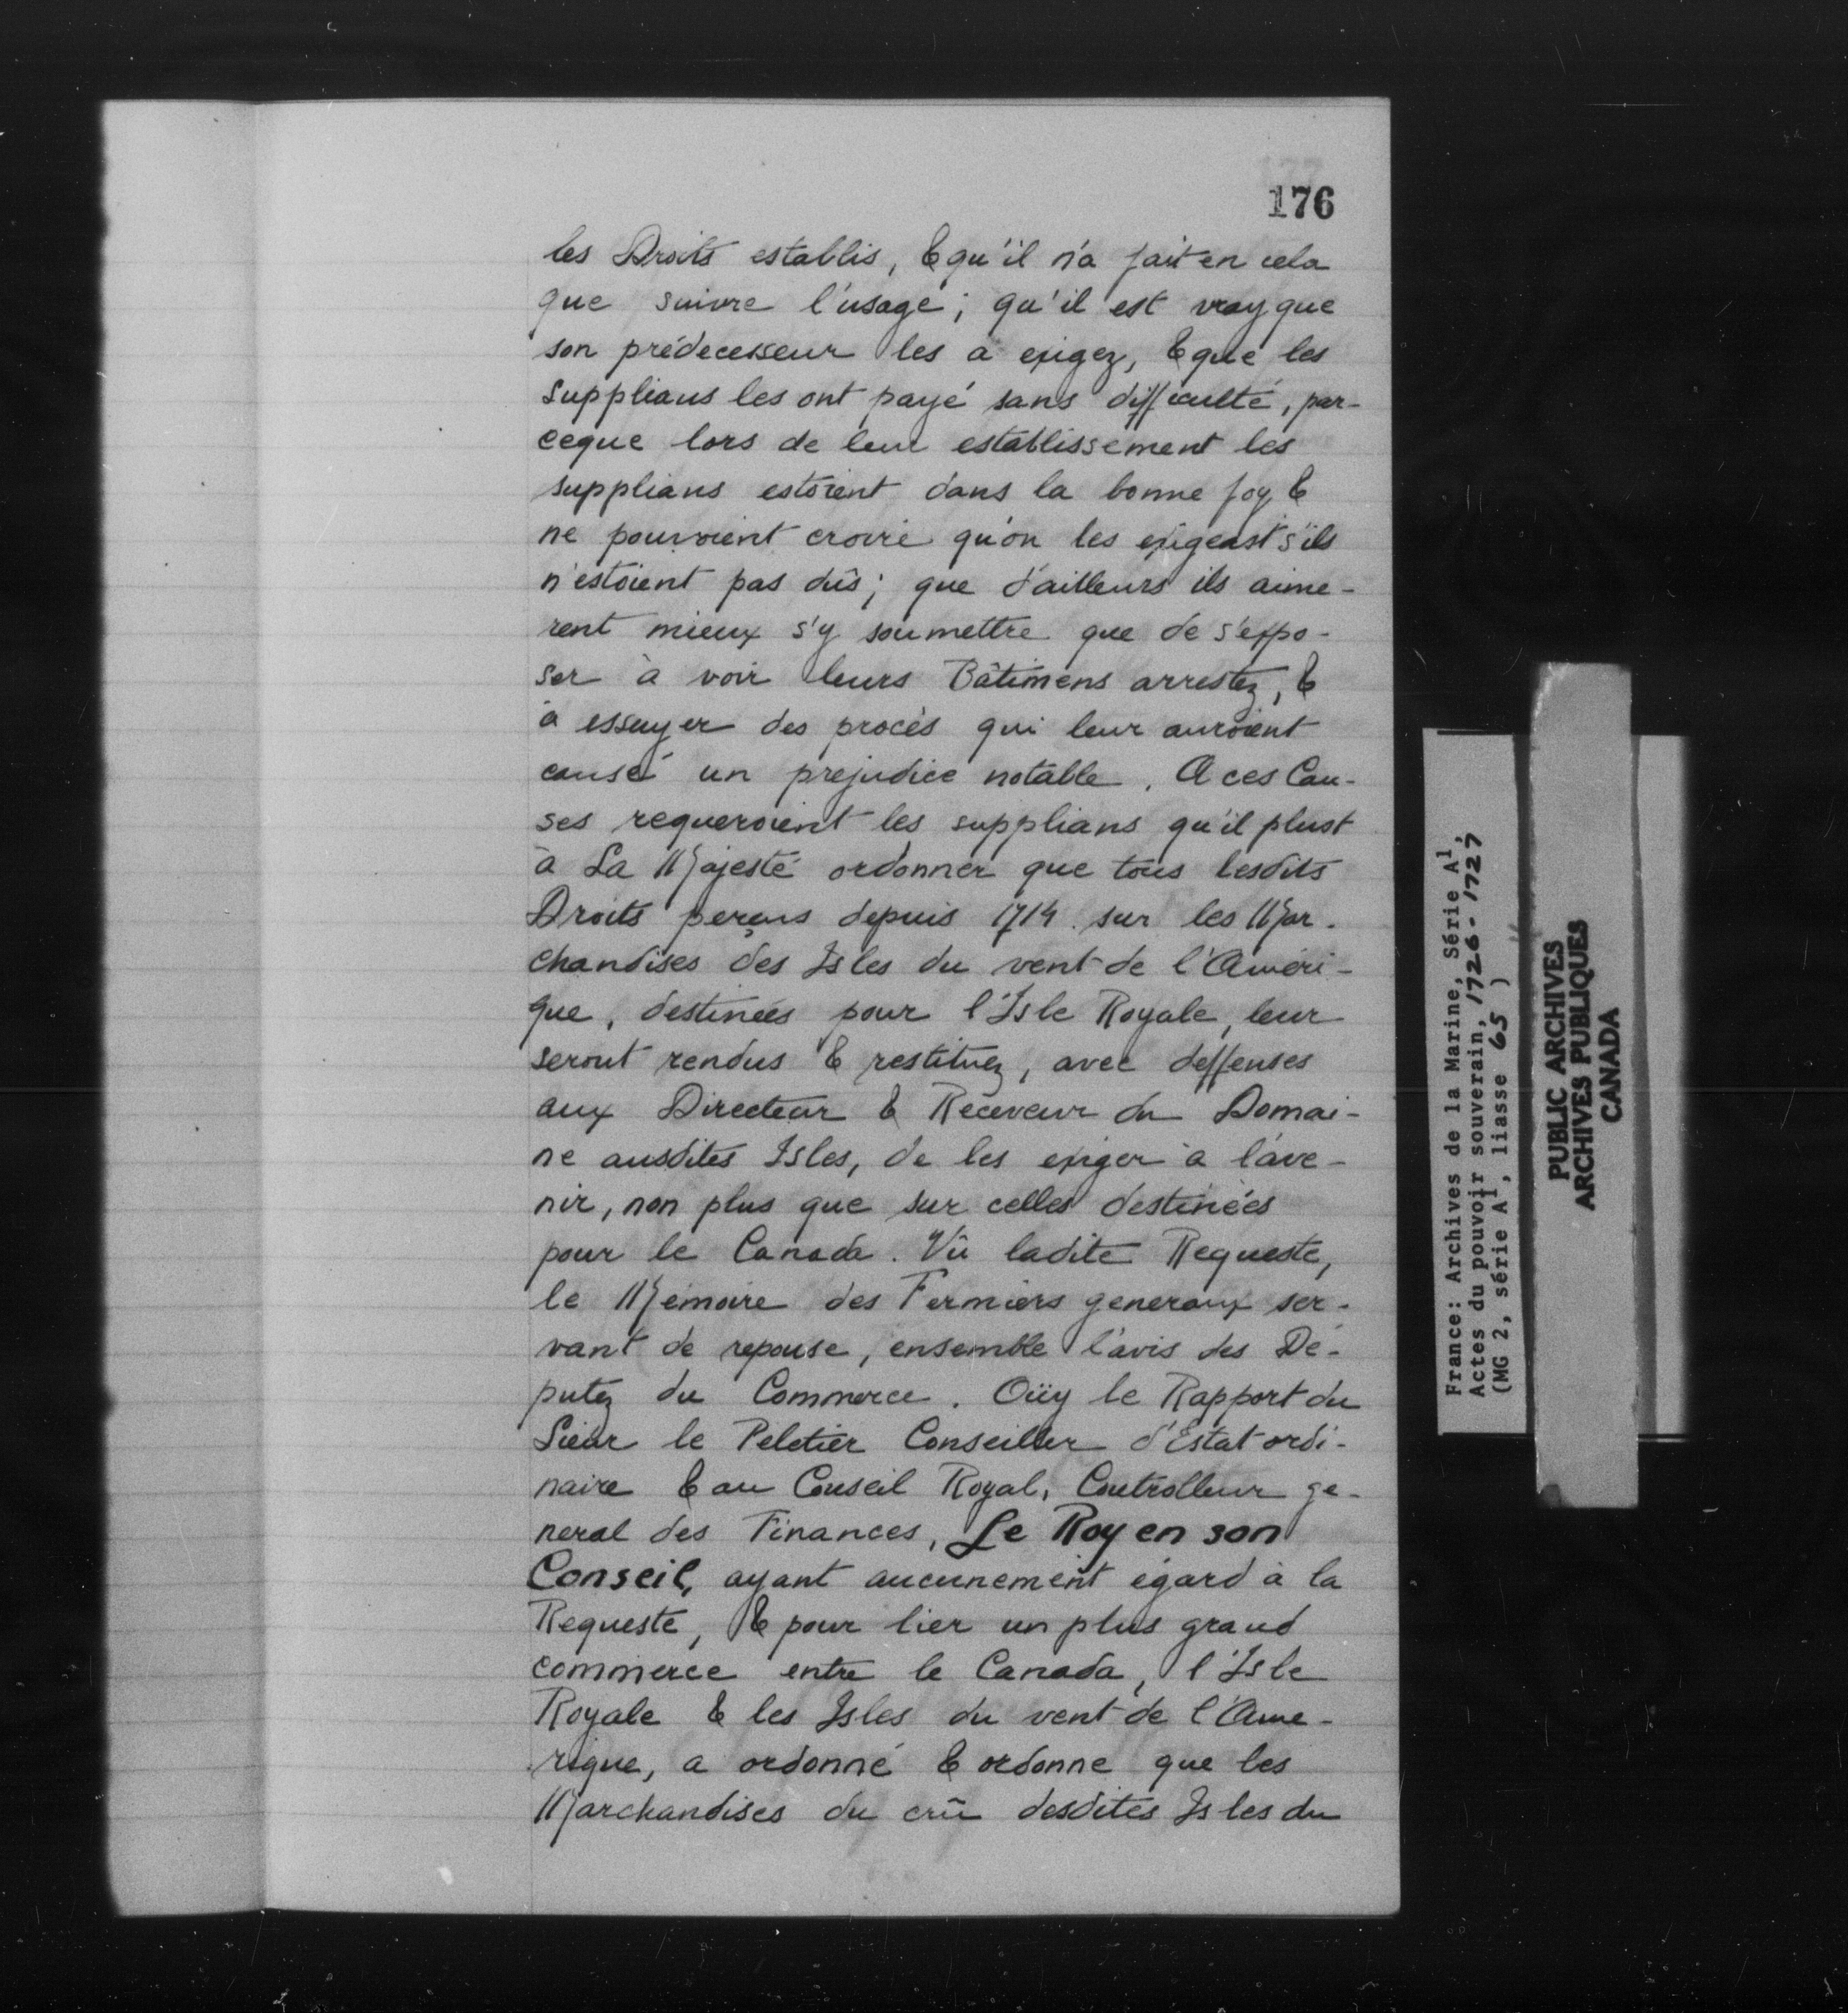 176
les Droits establis, & qu'il n'a fait en cela
que suivre l'usage; qu'il est vray que
son prédecesseur les a exigez, & que les
supplians les ont payé sans difficulté, par-
ceque lors de leur establissement les
supplians estoient dans la bonne foy, &
ne pouvoient croire qu'on les exigeast s'ils
n'estoient pas dûs; que d'ailleurs ils aime-
rent mieux s'y soumettre que de s'expo-
ser à voir leurs Bâtimens arrestez, &
à essuyer des procès qui leur auroient
causé un prejudice notable. A ces Cau-
ses requeroient les supplians qu'il plust
à Sa Majesté ordonner que tous lesdits
Droits perçus depuis 1714. sur les Mar-
chandises des Isles du vent de l'Améri-
que, destinées pour l'Isle Royale, leur
seront rendus & restituez, avec deffenses
aux Directeur & Receveur du Domai-
ne ausdites Isles, de les exiger à l'ave-
nir, non plus que sur celles destinées
pour le Canada. Vû ladite Requeste,
le Mémoire des Fermiers generaux ser-
vant de reponse, ensemble l'avis des Dé-
putez du Commerce. Oüy le Rapport du
Sieur le Peletier Conseiller d'Estat ordi-
naire & au Conseil Royal, Controlleur ge-
neral des Finances, Le Roy en son
Conseil, ayant aucunement égard à la
Requeste, & pour lier un plus grand
commerce entre le Canada, l'Isle
Royale & les Isles du vent de l'Ame-
rique, a ordonné & ordonne que les
Marchandises du crû desdites Isles du
France: Archives de la Marine, Série A1,
Actes du pouvoir souverain, 1726-1727
(MG 2, série A1, liasse 65 )
PUBLIC ARCHIVES
ARCHIVES PUBLIQUES
CANADA